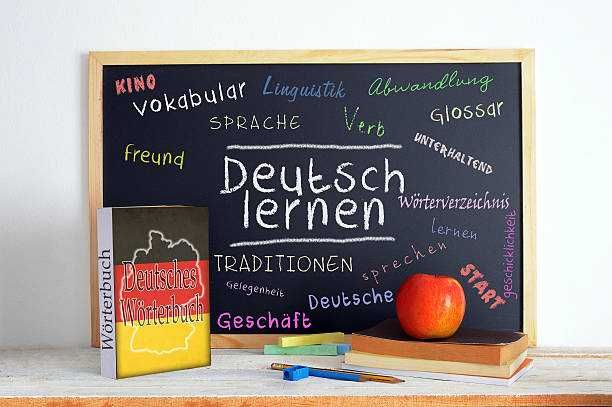 KINO
Vokabular
Linguistik
Abwandlung
Glossar
SPRACHE
Verb
UNTERHALTEND
freund
Deutsch
lernen
Wörterverzeichnis
lernen
geschicklichkeit
TRADITIONEN
sprechen
Gelegenheit
Deutsche
START
Geschäft
Wörterbuch
Deutsches
Wörterbuch